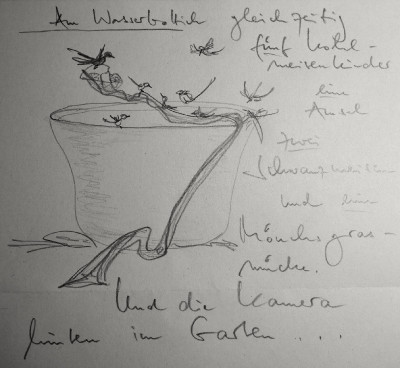 Am Wasserbottich gleichzeitig
fünf Kohl-
meisenkinder
eine
Amsel
zwei
Schwanzmeisen
und eine
Mönchsgras-
mücke.
Und die Kamera
hinten im Garten . . . .